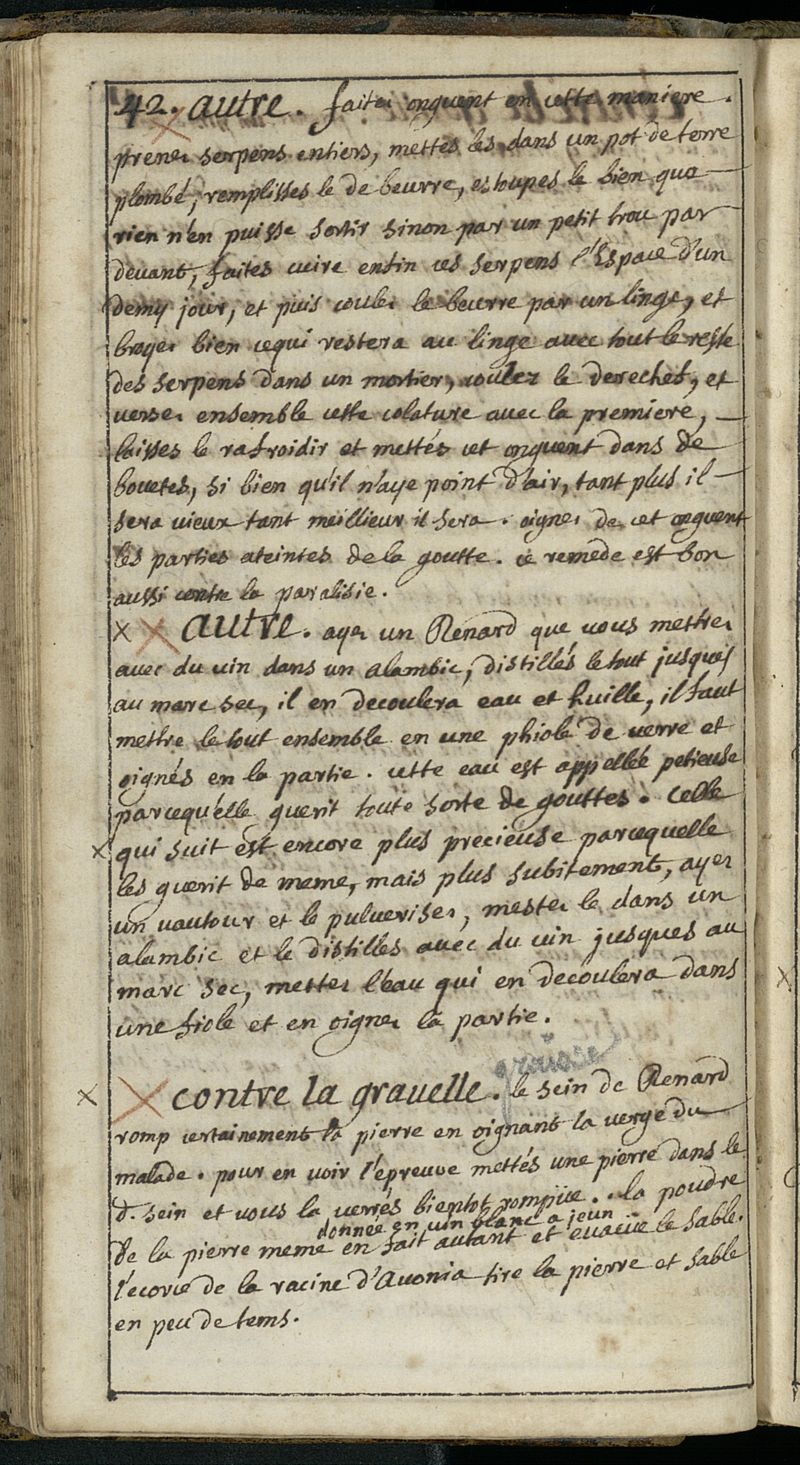 42. autre. faites onguent en cette maniere.
prenez serpens entiers, mettes les dans un pot de terre
plombé, remplisses le de beurre, estoupes le bien que
rien n'en puisse sortir sinon par un petit trou par
devant, faites cuire enfin ces serpens l'Espace d'un
demy jour, et puis coulez le beurre par un linge, et
broyez bien cequi restera au linge avec tout le reste
des serpens dans un mortier, coulez le derechef, et
versez ensemble cette colature avec la premiere,
laisses le rafroidir et mettés cet onguent dans de
bouetes, si bien qu'il n'aye point d'air, tant plus il
sera vieux tant meillieur il sera. oignez de cet onguent
les parties ateintes de la goutte. ce remede est bon
aussi contre la paralisie.
x x autre. ayez un Renard que vous mettrez
avec du vin dans un alambic, distillés le tout jusques
au marc sec, il en decoulera eau et huille, il faut
mettre le tout ensemble en une phiole de verre et
oignés en la partie. cette eau est appellée petieuse
parcequ'elle guerit toute sorte de gouttes. Celle
x qui suit est encore plus precieuse parcequelle
les guerit de meme, mais plus subitement, ayez
un vautour et le pulverisez, mettez le dans un
alambic et le distillés avec du vin jusques au
marc sec, mettez l'eau qui en decoulera dans
une fiole et en oignez la partie.
graisse
x x contre la gravelle. le sein de Renard
romp certainement la pierre en oignant la verge du
malade. pour en voir l'épreuve mettés une pierre dans le
d. sein et vous la verrés bientot rompüe. la poudre
donnée en vin blanc a jeun
de la pierre meme en fait autant et evacüe le sable.
l'ecorce de la racine d'Avonia tire la pierre et sable
en peu de tems.